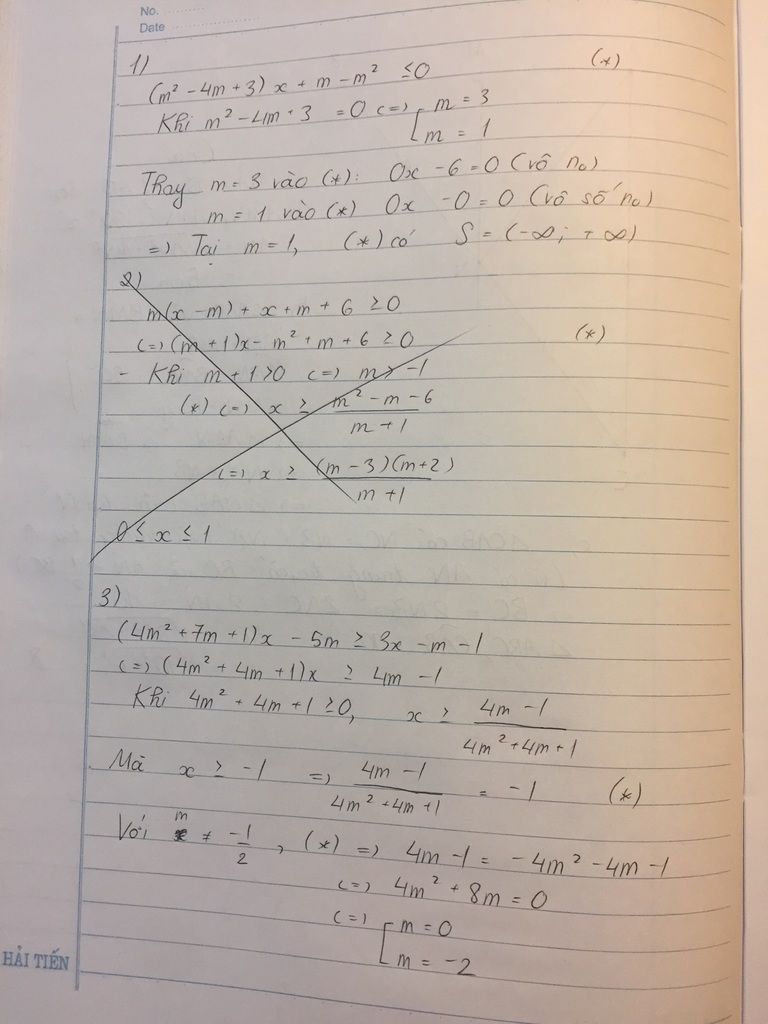 No.
Date
1)
(m² - 4m + 3) x + m - m² ≤ 0 (*)
Khi m² - 4m + 3 = 0 <=> [ m = 3
m = 1
Thay m = 3 vào (*): 0x - 6 = 0 (vô n₀)
m = 1 vào (*) 0x - 0 = 0 (vô số n₀)
=> Tại m = 1, (*) có S = (-∞; +∞)
2)
m(x - m) + x + m + 6 ≥ 0
<=> (m + 1)x - m² + m + 6 ≥ 0 (*)
- Khi m + 1 > 0 <=> m > -1
(*) <=> x ≥ (m² - m - 6)/(m + 1)
<=> x ≥ (m - 3)(m + 2)/(m + 1)
0 ≤ x ≤ 1
3)
(4m² + 7m + 1)x - 5m ≥ 3x - m - 1
<=> (4m² + 4m + 1)x ≥ 4m - 1
Khi 4m² + 4m + 1 ≥ 0, x ≥ (4m - 1)/(4m² + 4m + 1)
Mà x ≥ -1 => (4m - 1)/(4m² + 4m + 1) = -1 (*)
Với m ≠ -1/2, (*) => 4m - 1 = -4m² - 4m - 1
<=> 4m² + 8m = 0
<=> [ m = 0
m = -2
HẢI TIẾN